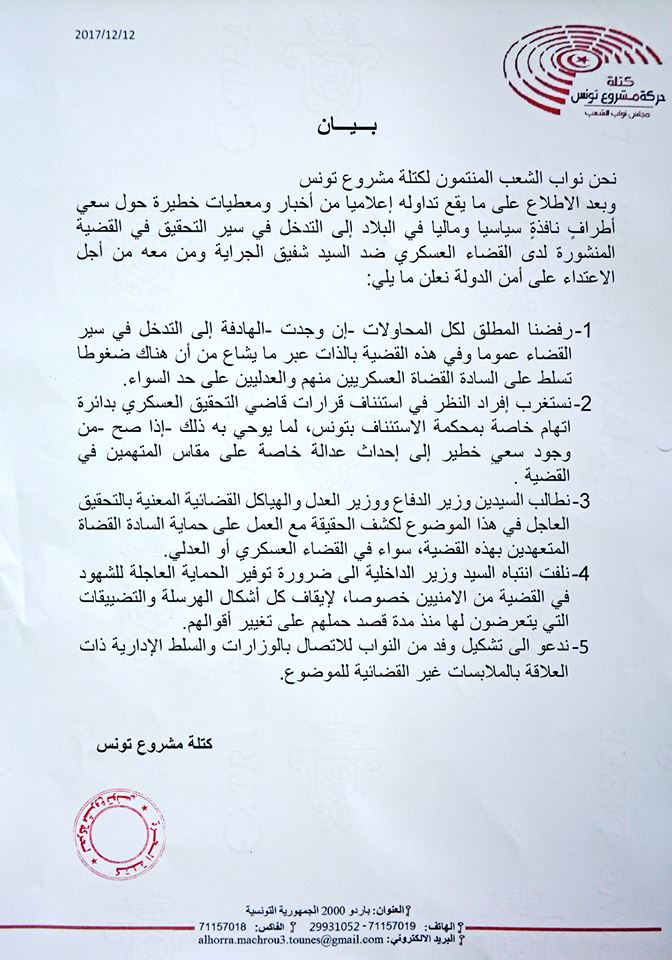 2017/12/12
كتلة
حركة مشروع تونس
مجلس نواب الشعب
بـيــان
نحن نواب الشعب المنتمون لكتلة مشروع تونس
وبعد الاطلاع على ما يقع تداوله إعلاميا من أخبار ومعطيات خطيرة حول سعي
أطرافٍ نافذةٍ سياسيا وماليا في البلاد إلى التدخل في سير التحقيق في القضية
المنشورة لدى القضاء العسكري ضد السيد شفيق الجراية ومن معه من أجل
الاعتداء على أمن الدولة نعلن ما يلي:
1-رفضنا المطلق لكل المحاولات -إن وجدت -الهادفة إلى التدخل في سير
القضاء عموما وفي هذه القضية بالذات عبر ما يشاع من أن هناك ضغوطا
تسلط على السادة القضاة العسكريين منهم والعدليين على حد السواء.
2-نستغرب إفراد النظر في استئناف قرارات قاضي التحقيق العسكري بدائرة
اتهام خاصة بمحكمة الاستئناف بتونس، لما يوحي به ذلك -إذا صح -من
وجود سعيٍ خطير إلى إحداث عدالة خاصة على مقاس المتهمين في
القضية .
3-نطالب السيدين وزير الدفاع ووزير العدل والهياكل القضائية المعنية بالتحقيق
العاجل في هذا الموضوع لكشف الحقيقة مع العمل على حماية السادة القضاة
المتعهدين بهذه القضية، سواء في القضاء العسكري أو العدلي.
4-نلفت انتباه السيد وزير الداخلية الى ضرورة توفير الحماية العاجلة للشهود
في القضية من الامنيين خصوصا، لإيقاف كل أشكال الهرسلة والتضييقات
التي يتعرضون لها منذ مدة قصد حملهم على تغيير أقوالهم.
5-ندعو الى تشكيل وفد من النواب للاتصال بالوزارات والسلط الإدارية ذات
العلاقة بالملابسات غير القضائية للموضوع.
كتلة مشروع تونس
كتلة الحرة
لحركة مشروع تونس
العنوان: باردو 2000 الجمهورية التونسية
الهاتف: 71157019 - 29931052 الفاكس: 71157018
البريد الالكتروني: alhorra.machrou3.tounes@gmail.com